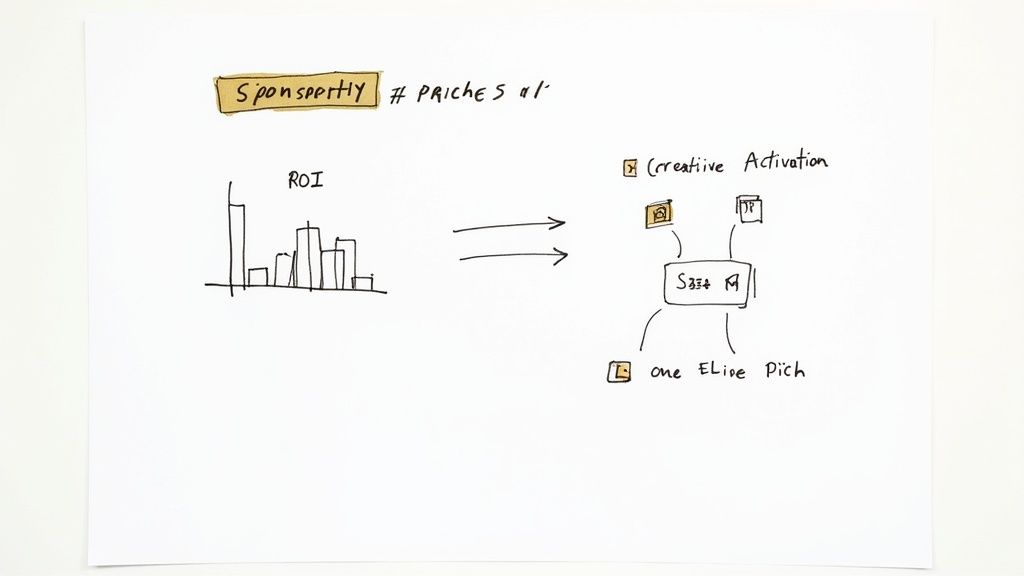 Sponsportly # PRICHES
ROI
Crreatiive Activation
one ELipe Pich